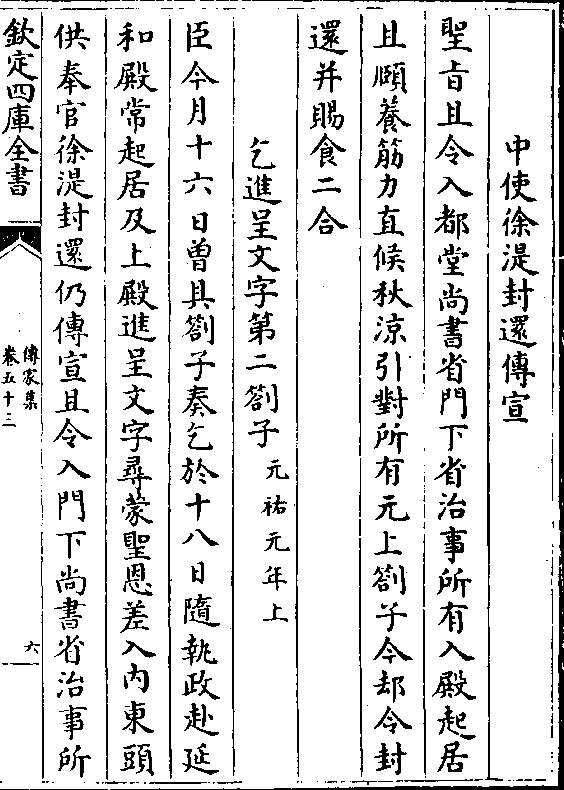 中使徐湜封還傳宣
聖㫖且令入都堂尚書省門下省治事所有入殿起居
且頤養筋力直候秋涼引對所有元上劄子今却令封
還并賜食二合
乞進呈文字第二劄子元祐元年上
臣今月十六日曽具劄子奏乞於十八日隨執政赴延
和殿常起居及上殿進呈文字尋蒙聖恩差入内東頭
供奉官徐湜封還仍傳宣且令入門下尚書省治事所
欽定四庫全書
傳家集
卷五十三
六